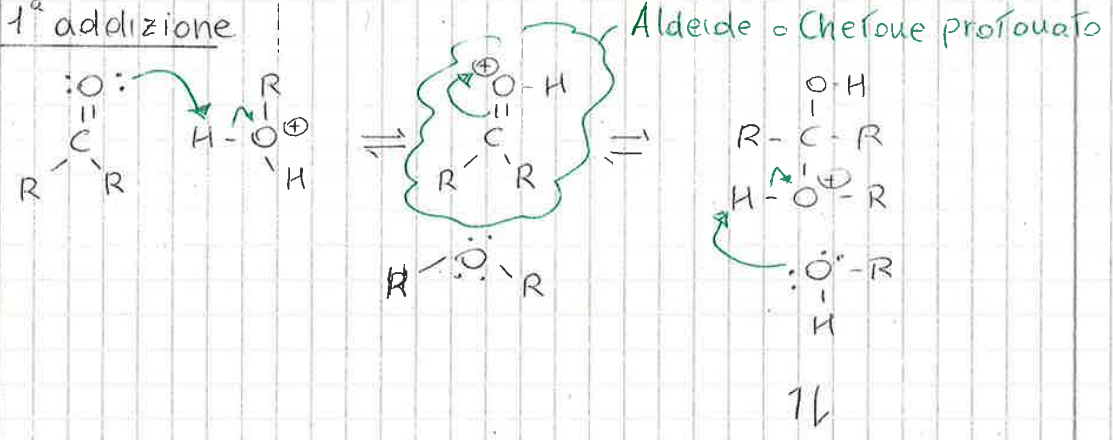 1ª addizione
Aldeide o Chetone protonato
:O: R ⊕ O-H O-H
|| | || |
C H-O⊕ ⇌ C ⇌ R-C-R
R R H R R H-O⊕-R
H O R :O-R
H
⇌